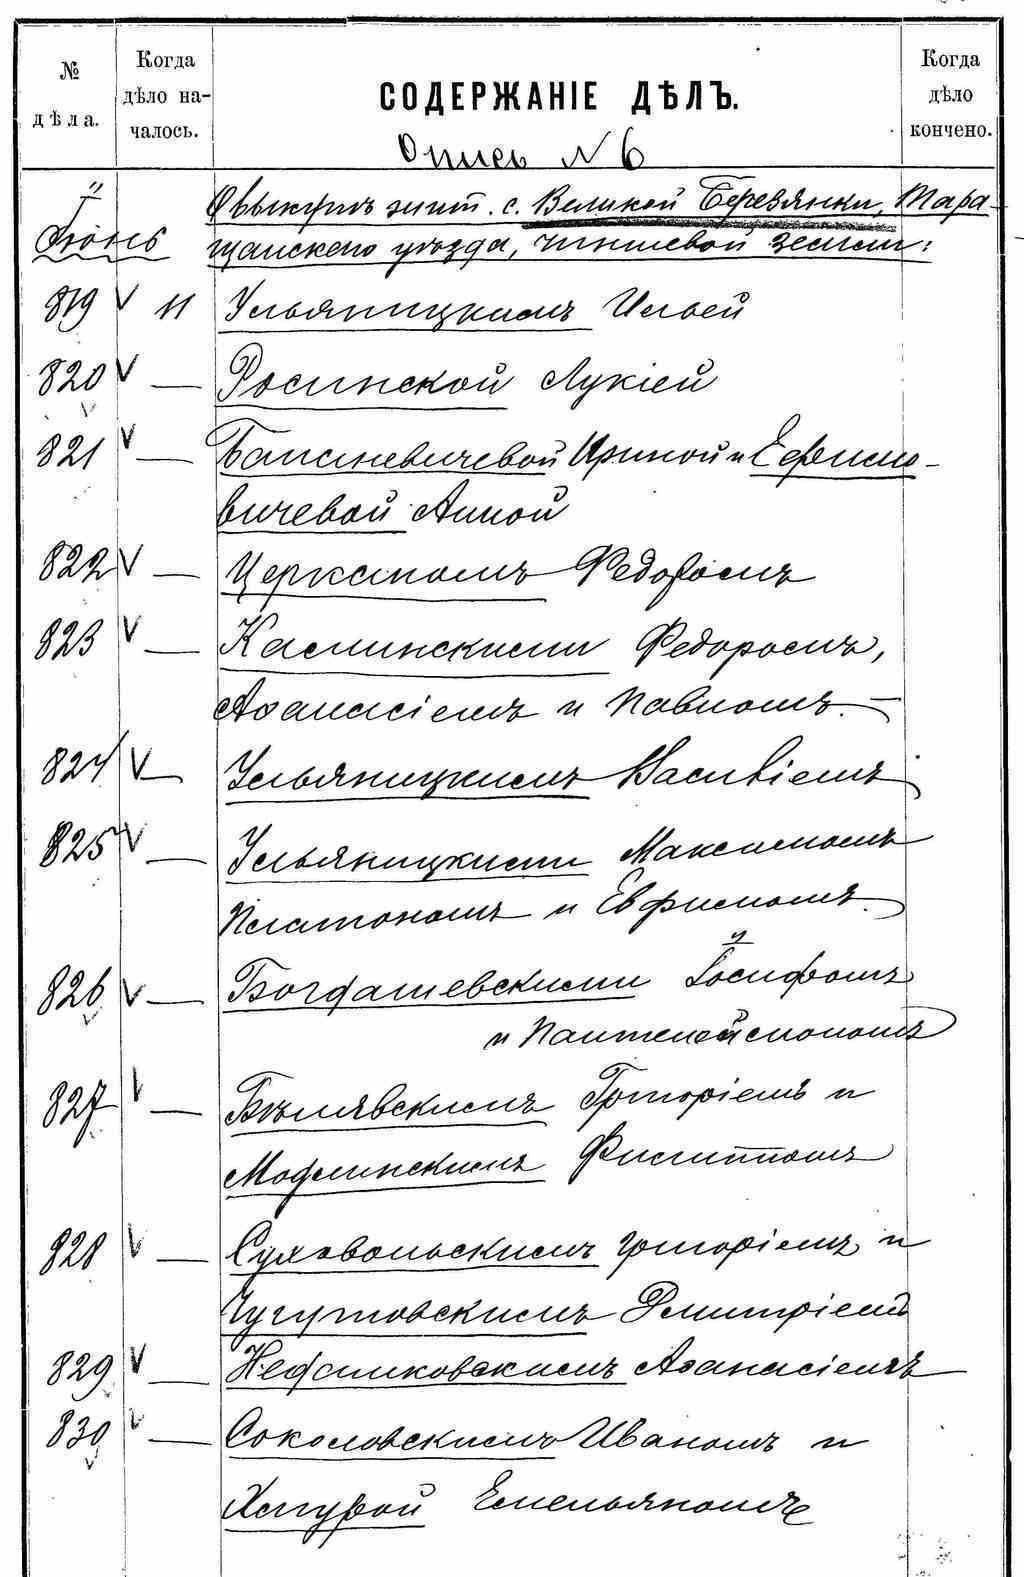 № дѣла. Когда дѣло началось. СОДЕРЖАНІЕ ДѢЛЪ. Когда дѣло кончено.
Опись N 6
О выкупѣ жит. с. Великой Березянки, Тара-
Іюнь щанского уѣзда, чиншевой земли:
819 V 11 Ульяницкимъ Ильей
820 V — Росинской Лукіей
821 V — Ириной и Ефимо-
вичевой Анной
822 V — Церканомъ Федоромъ
823 V — Калинскими Федоромъ,
Аѳанасіемъ и Павломъ. —
824 V — Ульяницкимъ Василіемъ
825 V — Ульяницкими Максимомъ
Платономъ и Евфимомъ.
826 V — Богдашевскими Іосифомъ
и Пантелеймономъ
827 V — Бѣлявскимъ Григоріемъ и
Модлинскимъ Филиппомъ
828 V — Суховольскимъ Григоріемъ и
Дмитріемъ
829 V — Аѳанасіемъ
830 V — Соколовскимъ Иваномъ и
Хмурой Емельяномъ